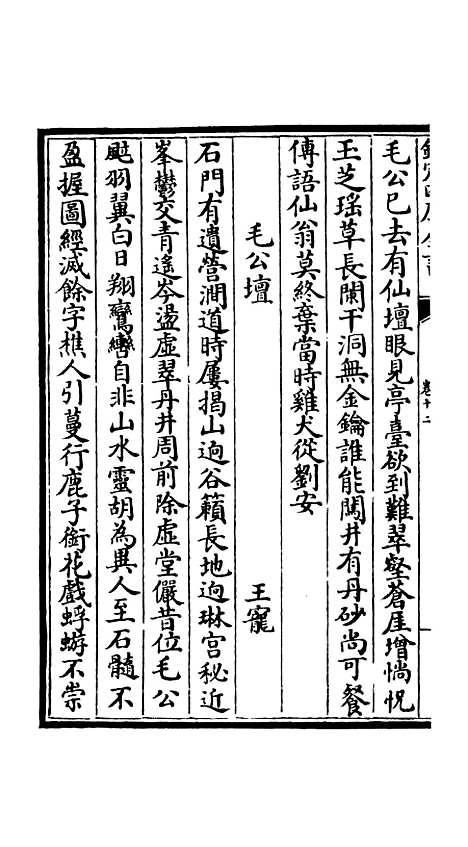 毛公已去有仙壇眼見亭臺欲到難翠壑蒼厓增惝怳
玉芝瑶草長闌干洞無金鑰誰能闖井有丹砂尚可餐
傳語仙翁莫終棄當時雞犬從劉安
毛公壇 王寵
石門有遺營澗道時屢揭山逈谷籟長地逈琳宫秘近
峯鬱交青遙岑盪虛翠丹井周前除虛堂儼昔位毛公
颭羽翼白日翔鸞轡自非山水靈胡為異人至石髓不
盈握圖經滅餘字樵人引蔓行鹿子銜花戲蜉蝣不崇